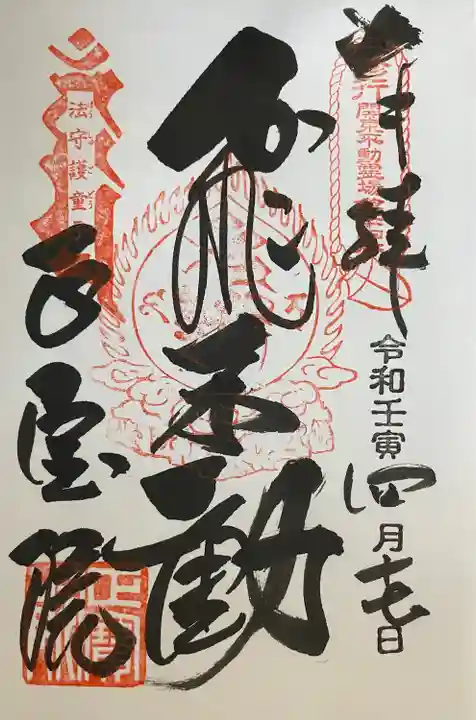 奉拝
関東不動霊場
令和壬寅四月十七日
飛不動
法守護童
正宝院